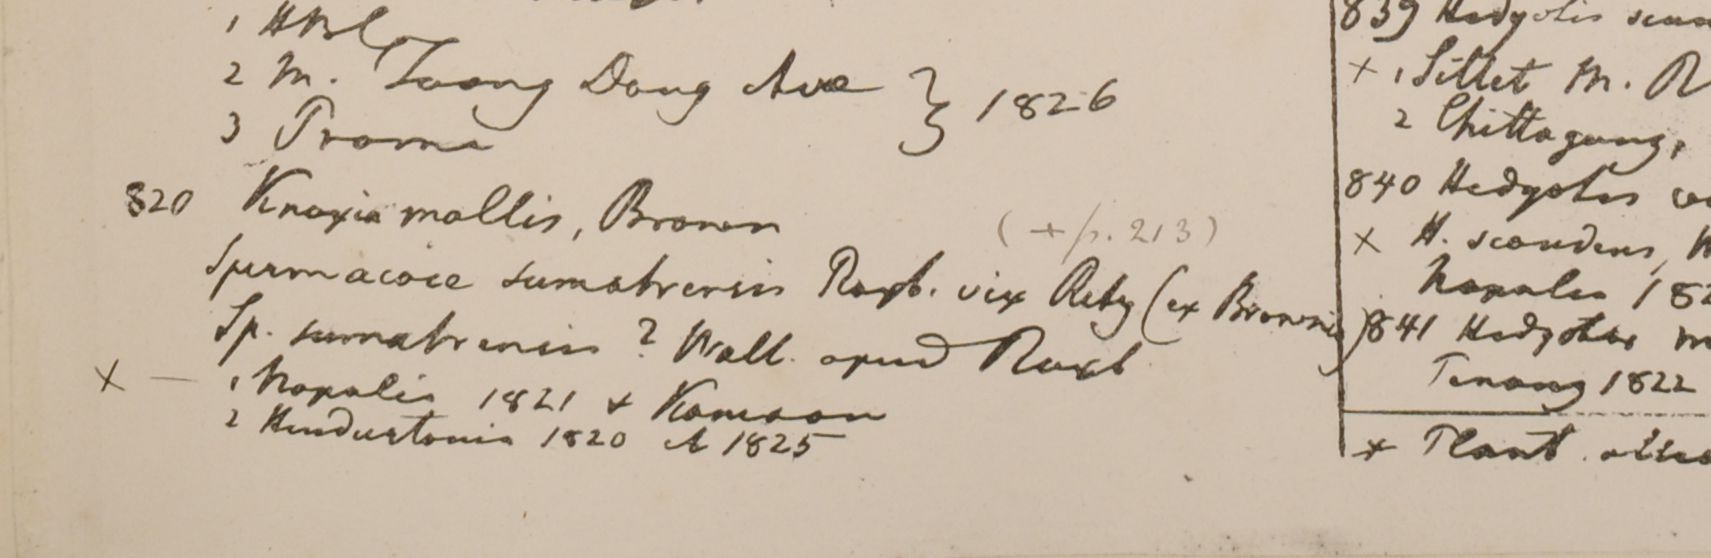 1 HBC
2 M. Toong Dong Avae } 1826
3 Prome
820 Knoxia mollis, Brown
(+ p. 213)
Spermacoce sumatrensis Roxb. vix Retz (ex Brownio)
Sp. sumatrensis ? Wall. apud Roxb
x — 1 Napalia 1821 & Kamaon
2 Hindustania 1820 & 1825
839 Hedyotis scan
x 1 Sillet M. R
2 Chittagung,
840 Hedyotis
x H. scandens,
Napalia 182
841 Hedyotis m
Penang 1822
x Plant